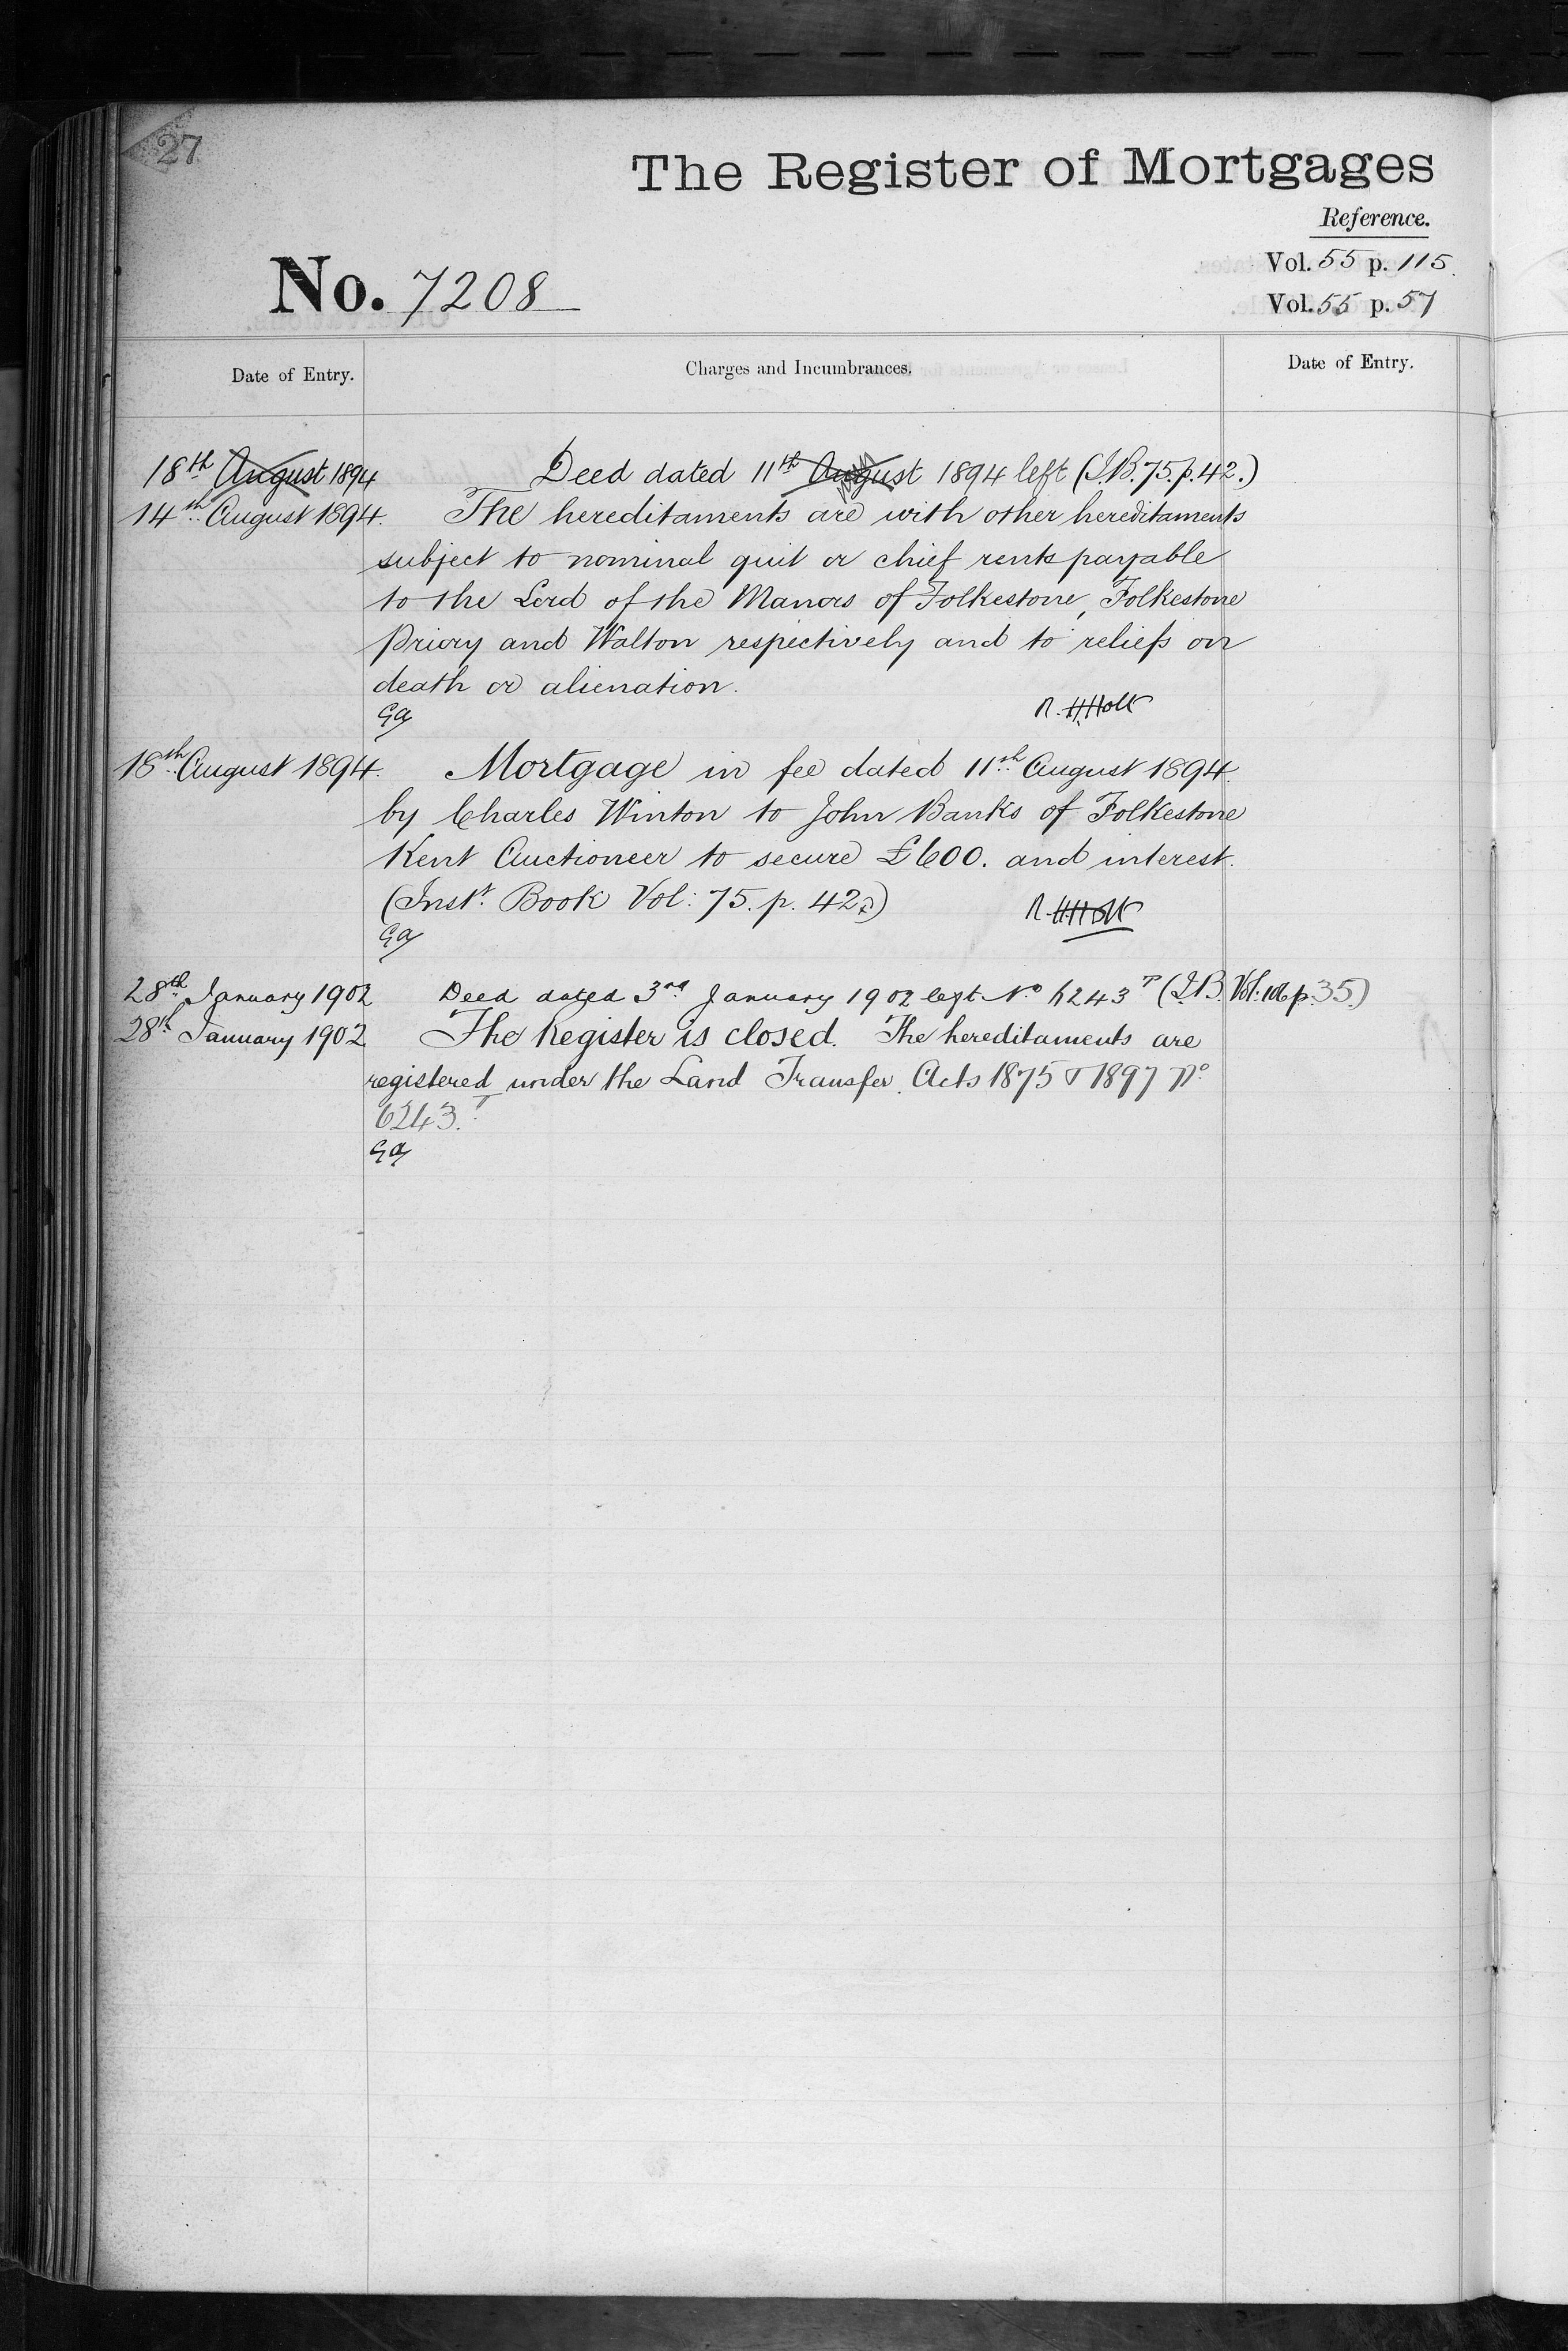 27
The Register of Mortgages
Reference.
Vol. 55 p. 115.
No. 7208
Vol. 55 p. 57
Date of Entry.
Charges and Incumbrances.
Date of Entry.
18th August 1894 Deed dated 11th August 1894 left (I.B. 75. p. 42.)
14th August 1894. The hereditaments are with other hereditaments
subject to nominal quit or chief rents payable
to the Lord of the Manors of Folkestone, Folkestone
Priory and Walton respectively and to reliefs on
death or alienation.
GA R. H. Holt
18th August 1894. Mortgage in fee dated 11th August 1894.
by Charles Winton to John Banks of Folkestone
Kent Auctioneer to secure £600. and interest.
(Inst. Book Vol: 75. p. 42.)
GA R. H. Holt
28th January 1902 Deed dated 3rd January 1902 left No 6243 T (I.B. Vol: 106 p. 35.)
28th January 1902 The Register is closed. The hereditaments are
registered under the Land Transfer Acts 1875 & 1897 No
6243. T
GA